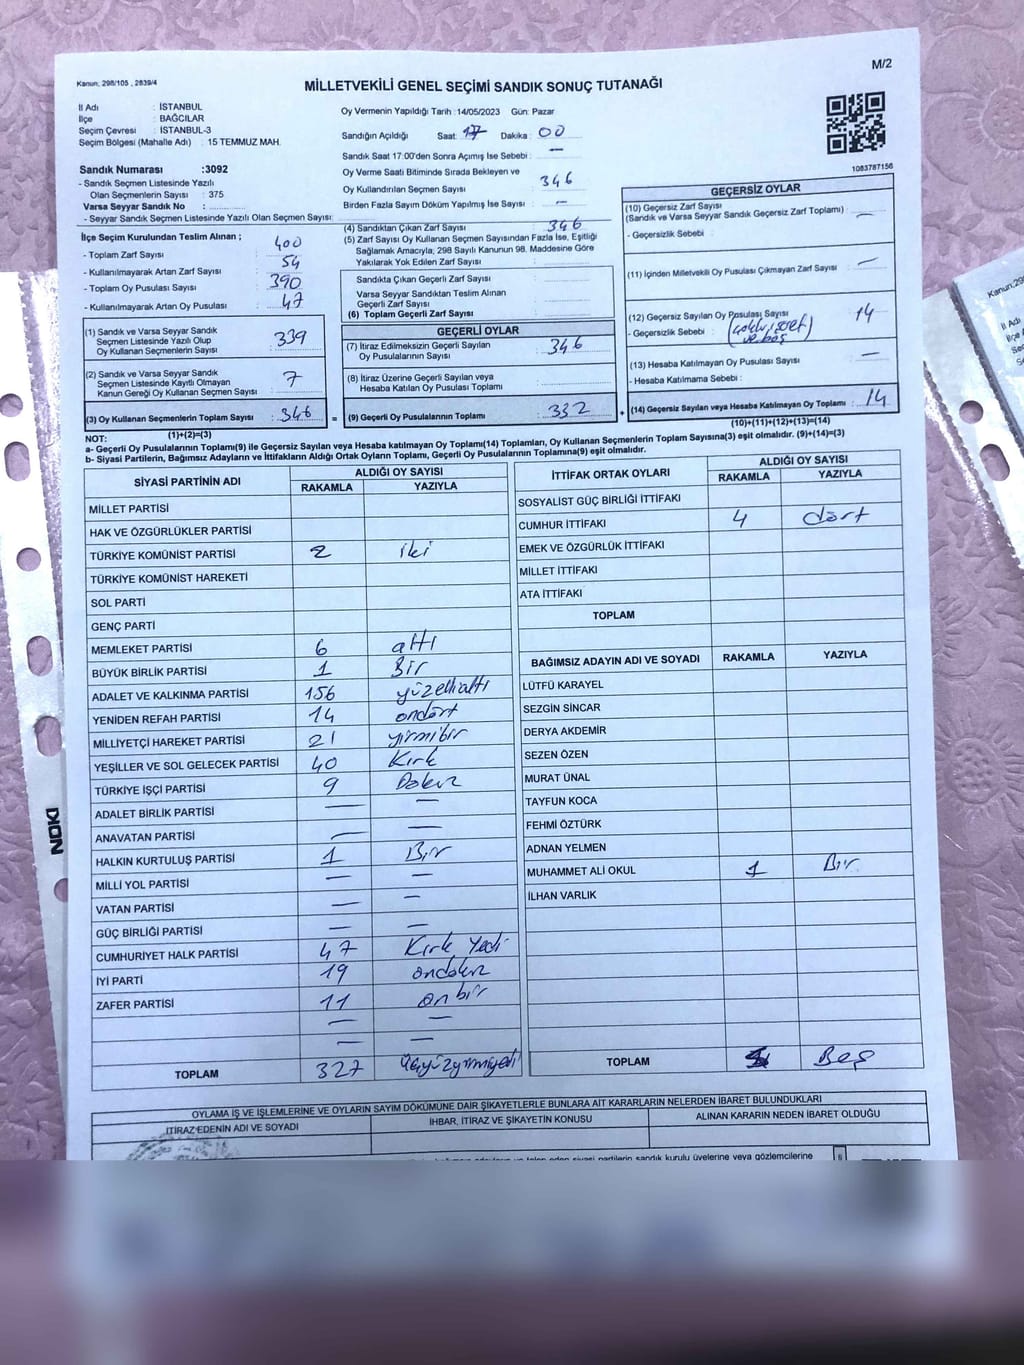 M/2
Kanun: 298/105 , 2839/4
MİLLETVEKİLİ GENEL SEÇİMİ SANDIK SONUÇ TUTANAĞI
İl Adı : İSTANBUL
İlçe : BAĞCILAR
Seçim Çevresi : İSTANBUL-3
Seçim Bölgesi (Mahalle Adı) : 15 TEMMUZ MAH.
Oy Vermenin Yapıldığı Tarih :14/05/2023 Gün: Pazar
Sandığın Açıldığı Saat: 17 Dakika : 00
Sandık Saat 17:00'den Sonra Açımış İse Sebebi : —
Oy Verme Saati Bitiminde Sırada Bekleyen ve
Oy Kullandırılan Seçmen Sayısı : 346
Birden Fazla Sayım Döküm Yapılmış İse Sayısı : —
1083787156
Sandık Numarası :3092
- Sandık Seçmen Listesinde Yazılı
Olan Seçmenlerin Sayısı : 375
Varsa Seyyar Sandık No :
- Seyyar Sandık Seçmen Listesinde Yazılı Olan Seçmen Sayısı:
İlçe Seçim Kurulundan Teslim Alınan ;
- Toplam Zarf Sayısı : 400
- Kullanılmayarak Artan Zarf Sayısı : 54
- Toplam Oy Pusulası : 390
- Kullanılmayarak Artan Oy Pusulası : 47
(1) Sandık ve Varsa Seyyar Sandık
Seçmen Listesinde Yazılı Olup
Oy Kullanan Seçmenlerin Sayısı : 339
(2) Sandık ve Varsa Seyyar Sandık
Seçmen Listesinde Kayıtlı Olmayan
Kanun Gereği Oy Kullanan Seçmen Sayısı : 7
(3) Oy Kullanan Seçmenlerin Toplam Sayısı : 346
(1)+(2)=(3)
(4) Sandıktan Çıkan Zarf Sayısı : 346
(5) Zarf Sayısı Oy Kullanan Seçmen Sayısından Fazla İse, Eşitliği
Sağlamak Amacıyla; 298 Sayılı Kanunun 98. Maddesine Göre
Yakılarak Yok Edilen Zarf Sayısı :
Sandıkta Çıkan Geçerli Zarf Sayısı :
Varsa Seyyar Sandıktan Teslim Alınan
Geçerli Zarf Sayısı :
(6) Toplam Geçerli Zarf Sayısı :
GEÇERLİ OYLAR
(7) İtiraz Edilmeksizin Geçerli Sayılan
Oy Pusulalarının Sayısı : 346
(8) İtiraz Üzerine Geçerli Sayılan veya
Hesaba Katılan Oy Pusulası Toplamı :
= (9) Geçerli Oy Pusulalarının Toplamı : 332 +
GEÇERSİZ OYLAR
(10) Geçersiz Zarf Sayısı
(Sandık ve Varsa Seyyar Sandık Geçersiz Zarf Toplamı) : —
- Geçersizlik Sebebi :
(11) İçinden Milletvekili Oy Pusulası Çıkmayan Zarf Sayısı : —
(12) Geçersiz Sayılan Oy Pusulası Sayısı : 14
- Geçersizlik Sebebi :
(13) Hesaba Katılmayan Oy Pusulası Sayısı : —
- Hesaba Katılmama Sebebi :
(14) Geçersiz Sayılan veya Hesaba Katılmayan Oy Toplamı : 14
(10)+(11)+(12)+(13)=(14)
NOT:
a- Geçerli Oy Pusulalarının Toplamı(9) ile Geçersiz Sayılan veya Hesaba katılmayan Oy Toplamı(14) Toplamları, Oy Kullanan Seçmenlerin Toplam Sayısına(3) eşit olmalıdır. (9)+(14)=(3)
b- Siyasi Partilerin, Bağımsız Adayların ve İttifakların Aldığı Ortak Oyların Toplamı, Geçerli Oy Pusulalarının Toplamına(9) eşit olmalıdır.
SİYASİ PARTİNİN ADI ALDIĞI OY SAYISI
RAKAMLA YAZIYLA
MİLLET PARTİSİ
HAK VE ÖZGÜRLÜKLER PARTİSİ
TÜRKİYE KOMÜNİST PARTİSİ 2 iki
TÜRKİYE KOMÜNİST HAREKETİ
SOL PARTİ
GENÇ PARTİ
MEMLEKET PARTİSİ 6 altı
BÜYÜK BİRLİK PARTİSİ 1 Bir
ADALET VE KALKINMA PARTİSİ 156 yüzelli altı
YENİDEN REFAH PARTİSİ 14 ondört
MİLLİYETÇİ HAREKET PARTİSİ 21 yirmibir
YEŞİLLER VE SOL GELECEK PARTİSİ 40 Kırk
TÜRKİYE İŞÇİ PARTİSİ 9 Dokuz
ADALET BİRLİK PARTİSİ — —
ANAVATAN PARTİSİ — —
HALKIN KURTULUŞ PARTİSİ 1 Bir
MİLLİ YOL PARTİSİ — —
VATAN PARTİSİ — —
GÜÇ BİRLİĞİ PARTİSİ — —
CUMHURİYET HALK PARTİSİ 47 Kırk Yedi
İYİ PARTİ 19 ondokuz
ZAFER PARTİSİ 11 on bir
— —
— —
TOPLAM 327 üçyüzyirmiyedi
İTTİFAK ORTAK OYLARI ALDIĞI OY SAYISI
RAKAMLA YAZIYLA
SOSYALİST GÜÇ BİRLİĞİ İTTİFAKI
CUMHUR İTTİFAKI 4 dört
EMEK VE ÖZGÜRLÜK İTTİFAKI
MİLLET İTTİFAKI
ATA İTTİFAKI
TOPLAM
BAĞIMSIZ ADAYIN ADI VE SOYADI RAKAMLA YAZIYLA
LÜTFÜ KARAYEL
SEZGİN SİNCAR
DERYA AKDEMİR
SEZEN ÖZEN
MURAT ÜNAL
TAYFUN KOCA
FEHMİ ÖZTÜRK
ADNAN YELMEN
MUHAMMET ALİ OKUL 1 Bir
İLHAN VARLIK
TOPLAM Beş
OYLAMA İŞ VE İŞLEMLERİNE VE OYLARIN SAYIM DÖKÜMÜNE DAİR ŞİKAYETLERLE BUNLARA AİT KARARLARIN NELERDEN İBARET BULUNDUKLARI
İTİRAZ EDENİN ADI VE SOYADI İHBAR, İTİRAZ VE ŞİKAYETİN KONUSU ALINAN KARARIN NEDEN İBARET OLDUĞU
NOKI